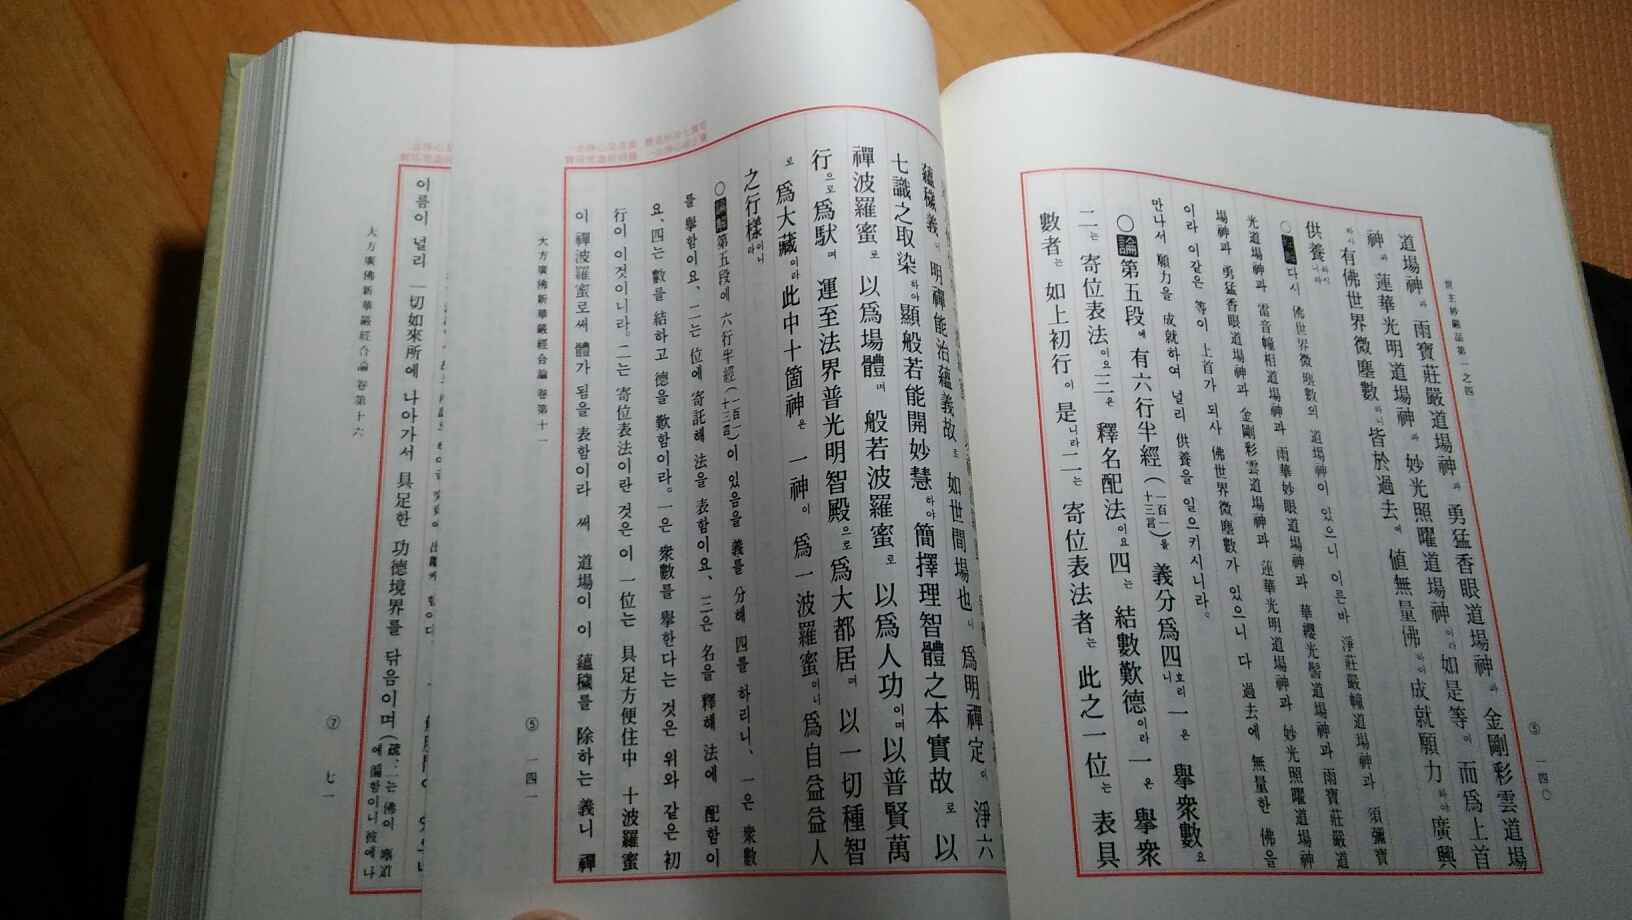 世主妙嚴品第一之四
⑤ 一四〇
道場神과 雨寶莊嚴道場神과 勇猛香眼道場神과 金剛彩雲道場
神과 蓮華光明道場神과 妙光照曜道場神이라 如是等이 而爲上首
하사 有佛世界微塵數하니 皆於過去에 値無量佛하야 成就願力하야 廣興
供養하시니라
다시 佛世界微塵數의 道場神이 있으니 이른바 淨莊嚴幢道場神과 須彌寶
光道場神과 雷音幢相道場神과 雨華妙眼道場神과 華纓光髻道場神과 雨寶莊嚴道
場神과 勇猛香眼道場神과 金剛彩雲道場神과 蓮華光明道場神과 妙光照曜道場神
이라 이같은 等이 上首가 되사 佛世界微塵數가 있으니 다 過去에 無量한 佛을
만나서 願力을 成就하여 널리 供養을 일으키시니라。
○論 第五段에 有六行半經(一百一十三言)을 義分爲四호리니 一은 擧衆數요
二는 寄位表法이요 三은 釋名配法이요 四는 結數歎德이라 一은 擧衆
數者는 如上初行이 是니라 二는 寄位表法者는 此之一位는 表具
蘊穢義니 明禪能治蘊義故로 如世間場也니 爲明禪定이 淨六
七識之取染하야 顯般若能開妙慧하야 簡擇理智體之本實故로 以
禪波羅蜜로 以爲場體며 般若波羅蜜로 以爲人功이며 以普賢萬
行으로 爲馱며 運至法界普光明智殿으로 爲大都居며 以一切種智
로 爲大藏이라 此中十箇神은 一神이 爲一波羅蜜이니 爲自益益人
之行樣이니라
○論 第五段에 六行半經(一百一十三言)이 있음을 義를 分해 四를 하리니、一은 衆數
를 擧함이요、二는 位에 寄託해 法을 表함이요、三은 名을 釋해 法에 配함이
요、四는 數를 結하고 德을 歎함이라。一은 衆數를 擧한다는 것은 위와 같은 初
行이 이것이니라。二는 寄位表法이란 것은 이 一位는 具足方便住中 十波羅蜜
이 禪波羅蜜로써 體가 됨을 表함이라 써 道場이 이 蘊穢를 除하는 義니 禪
大方廣佛新華嚴經合論 卷第十一
⑤ 一四一
이름이 널리 一切如來所에 나아가서 具足한 功德境界를 닦음이며(疏、二는 佛이
에 編함이니 彼에나
大方廣佛新華嚴經合論 卷第十六
⑦ 七一